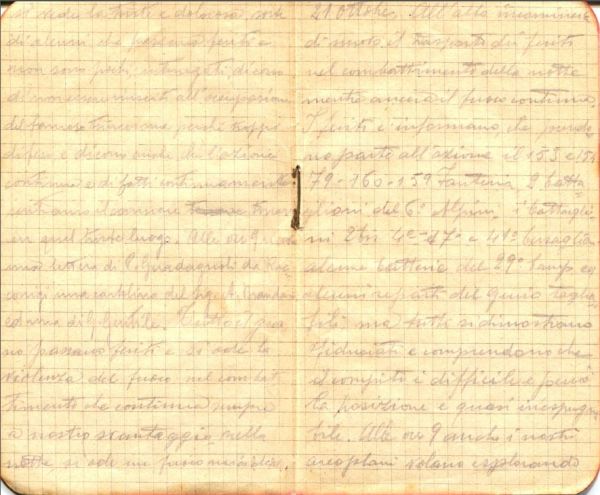 si vede la triste e dolorosa sorte
di alcuni che passano feriti e
non sono pochi, interrogati dicono
di non essere riusciti all'occupazione
del famoso trincerone perchè troppo
difeso e dicono anche che l'azione
continua e di fatti continuamente
il cannone
in quel triste luogo. Alle ore 9
una lettera di P. Guadagnoli da
una cartolina del Sig. A.
ed una di G. Gentile. Tutto il gior
no passano feriti e si ode la
violenza del fuoco nel combat
timento che continua sempre
a nostro svantaggio nella
notte si ode un fuoco
21 Ottobre. All'alba incomincia
di nuovo il trasporto dei feriti
nel combattimento della notte
mentre ancora il fuoco continua.
I feriti c'informano che prendo
no parte all'azione il 155 e 154
79-160-159 Fanteria, 2 batta
glioni del 6° Alpini, i battaglio
ni 2bis 4°-17° e 41° bersaglieri
alcune batterie del 29° Camp. ed
alcuni reparti del genio
ma tutti si dimostrano
fiduciati e comprendono che
il compito è difficile perciò
la posizione è quasi inespugna
bile. Alle ore 9 anche i nostri
areoplani volano esplorando